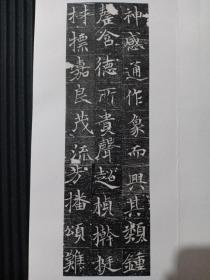 神感通作象而興其類鍾
罄含德所貴聲超楨幹挺
材摽嘉良茂流芳播頌難